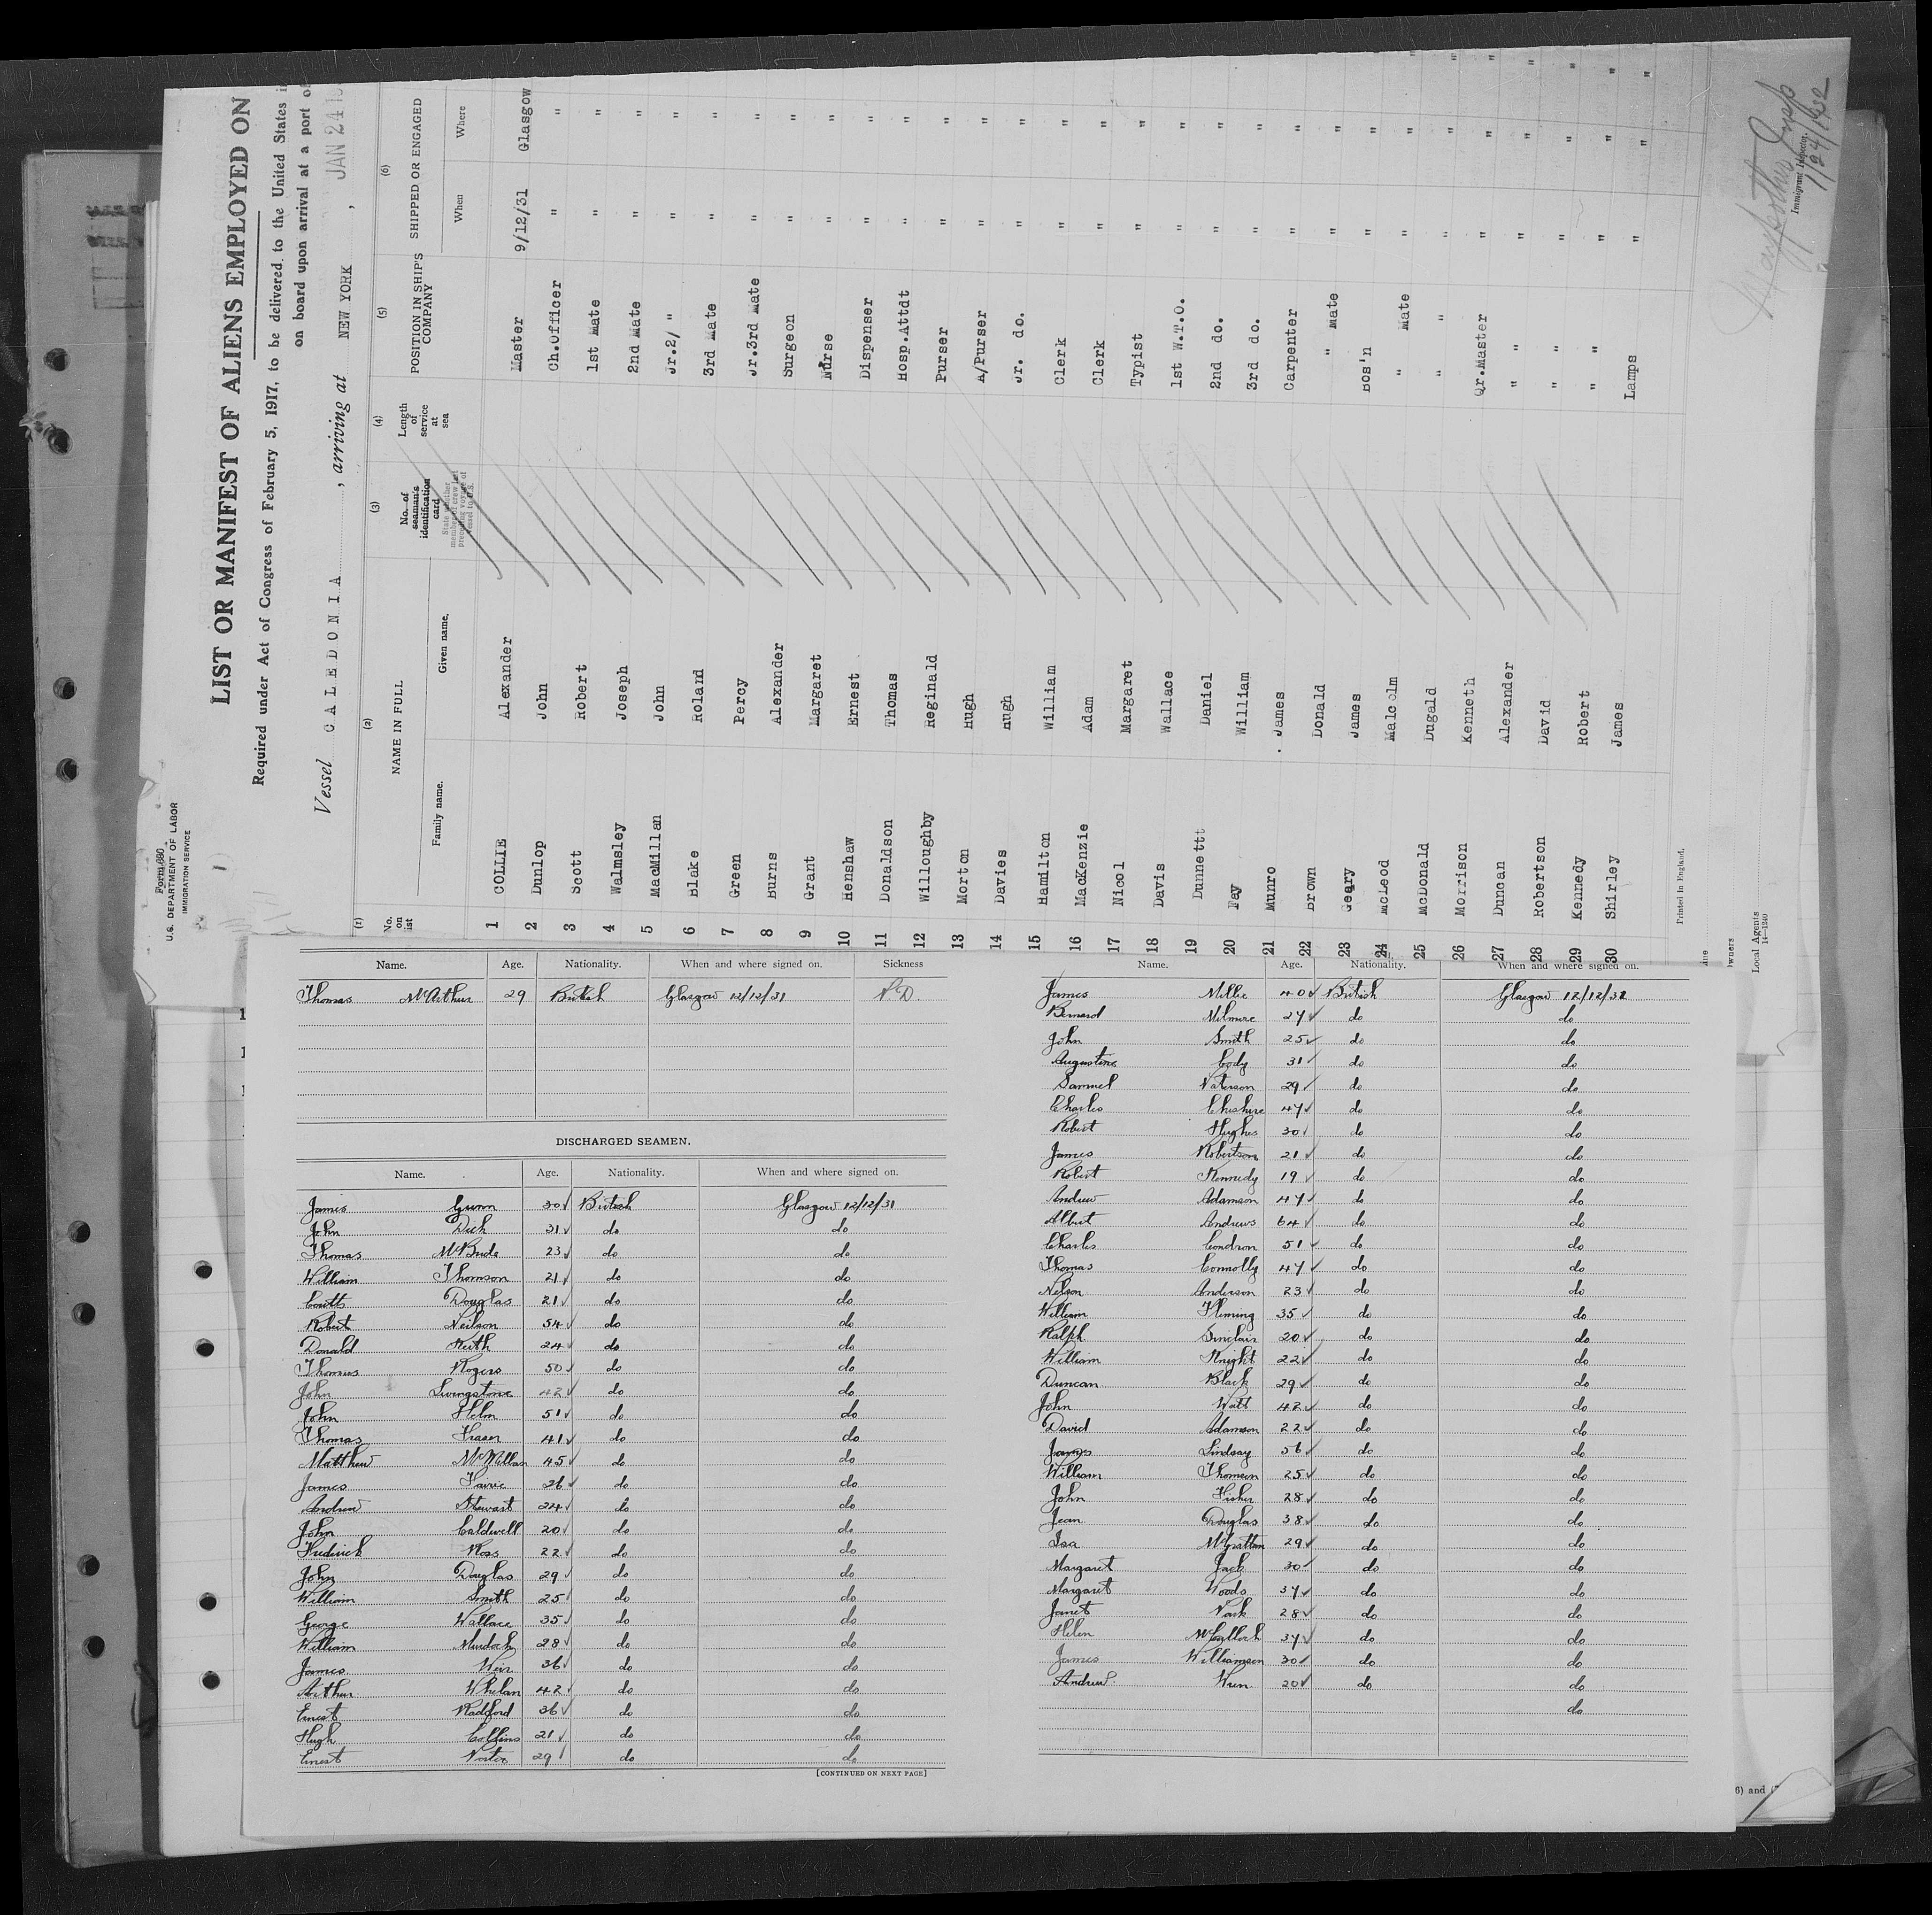 Form 680
U.S. DEPARTMENT OF LABOR
IMMIGRATION SERVICE
LIST OR MANIFEST OF ALIENS EMPLOYED ON
Required under Act of Congress of February 5, 1917, to be delivered to the United States i
on board upon arrival at a port of
Vessel CALEDONIA , arriving at NEW YORK , JAN 24 1
(1) (2) (3) (4) (5) (6)
No. on list NAME IN FULL No. of seaman's identification card Length of service at sea POSITION IN SHIP'S COMPANY SHIPPED OR ENGAGED
Family name. Given name. State whether member of crew last preceding voyage of vessel to U.S. When Where
1 COLLIE Alexander Master 9/12/31 Glasgow
2 Dunlop John Ch.Officer " "
3 Scott Robert 1st Mate " "
4 Walmsley Joseph 2nd Mate " "
5 MacMillan John Jr.2/ " " "
6 Blake Roland 3rd Mate " "
7 Green Percy Jr.3rd Mate " "
8 Burns Alexander Surgeon " "
9 Grant Margaret Nurse " "
10 Henshaw Ernest Dispenser " "
11 Donaldson Thomas Hosp.Attdt " "
12 Willoughby Reginald Purser " "
13 Morton Hugh A/Purser " "
14 Davies Hugh Jr. do. " "
15 Hamilton William Clerk " "
16 MacKenzie Adam Clerk " "
17 Nicol Margaret Typist " "
18 Davis Wallace 1st W.T.O. " "
19 Dunnettt Daniel 2nd do. " "
20 Fay William 3rd do. " "
21 Munro . James Carpenter " "
22 Brown Donald " Mate " "
23 Geary James Bos'n " "
24 McLeod Malcolm " Mate " "
25 McDonald Dugald " " " "
26 Morrison Kenneth Qr.Master " "
27 Duncan Alexander " " " "
28 Robertson David " " " "
29 Kennedy Robert " " " "
30 Shirley James Lamps " "
Printed in England.
Immigrant Inspector.
1/24/1932
Owners
Local Agents
14—1240
Name. Age. Nationality. When and where signed on. Sickness
Thomas McArthur 29 British Glasgow 12/12/31
DISCHARGED SEAMEN.
Name. Age. Nationality. When and where signed on.
James Gunn 30 British Glasgow 12/12/31
John Dick 31 do do
Thomas McBride 23 do do
William Thomson 21 do do
Coutts Douglas 21 do do
Robert Neilson 54 do do
Donald Keith 24 do do
Thomas Rogers 50 do do
John Livingstone 42 do do
John Helm 51 do do
Thomas Fraser 41 do do
Matthew McMillan 45 do do
James Fairie 26 do do
Andrew Stewart 24 do do
John Caldwell 20 do do
Frederick Ross 22 do do
John Douglas 29 do do
William Smith 25 do do
George Wallace 35 do do
William Murdoch 28 do do
James Weir 36 do do
Arthur Whelan 42 do do
Ernest Radford 36 do do
Hugh Collins 21 do do
Ernest 29 do do
[CONTINUED ON NEXT PAGE]
Name. Age. Nationality. When and where signed on.
James Millie 40 British Glasgow 12/12/31
Bernard Milmure 27 do do
John Smith 25 do do
Augustine Cody 31 do do
Samuel Paterson 29 do do
Charles Cheshire 47 do do
Robert Hughes 30 do do
James Robertson 21 do do
Robert Kennedy 19 do do
Andrew Adamson 47 do do
Albert Andrews 64 do do
Charles Condron 51 do do
Thomas Connolly 47 do do
Nelson Anderson 23 do do
William Fleming 35 do do
Ralph Sinclair 20 do do
William Knight 22 do do
Duncan Black 29 do do
John Watt 42 do do
David Adamson 22 do do
James Lindsay 56 do do
William Thomson 25 do do
John Fisher 28 do do
Jean Douglas 38 do do
Isa McGrattan 29 do do
Margaret Jack 30 do do
Margaret Woods 37 do do
Janet Park 28 do do
Helen McCulloch 37 do do
James Williamson 30 do do
Andrew Wren 20 do do
do
6) and (